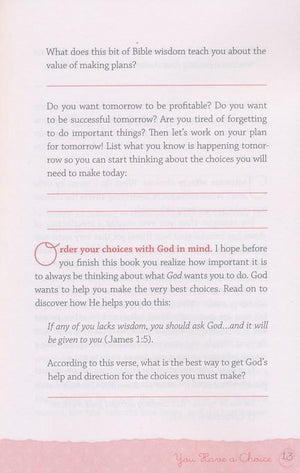 What does this bit of Bible wisdom teach you about the
value of making plans?
Do you want tomorrow to be profitable? Do you want
to be successful tomorrow? Are you tired of forgetting
to do important things? Then let's work on your plan
for tomorrow! List what you know is happening tomor-
row so you can start thinking about the choices you will
need to make today:
Order your choices with God in mind. I hope before
you finish this book you realize how important it is
to always be thinking about what God wants you to do. God
wants to help you make the very best choices. Read on to
discover how He helps you do this:
If any of you lacks wisdom, you should ask God...and it will
be given to you (James 1:5).
According to this verse, what is the best way to get God's
help and direction for the choices you must make?
You Have a Choice 13